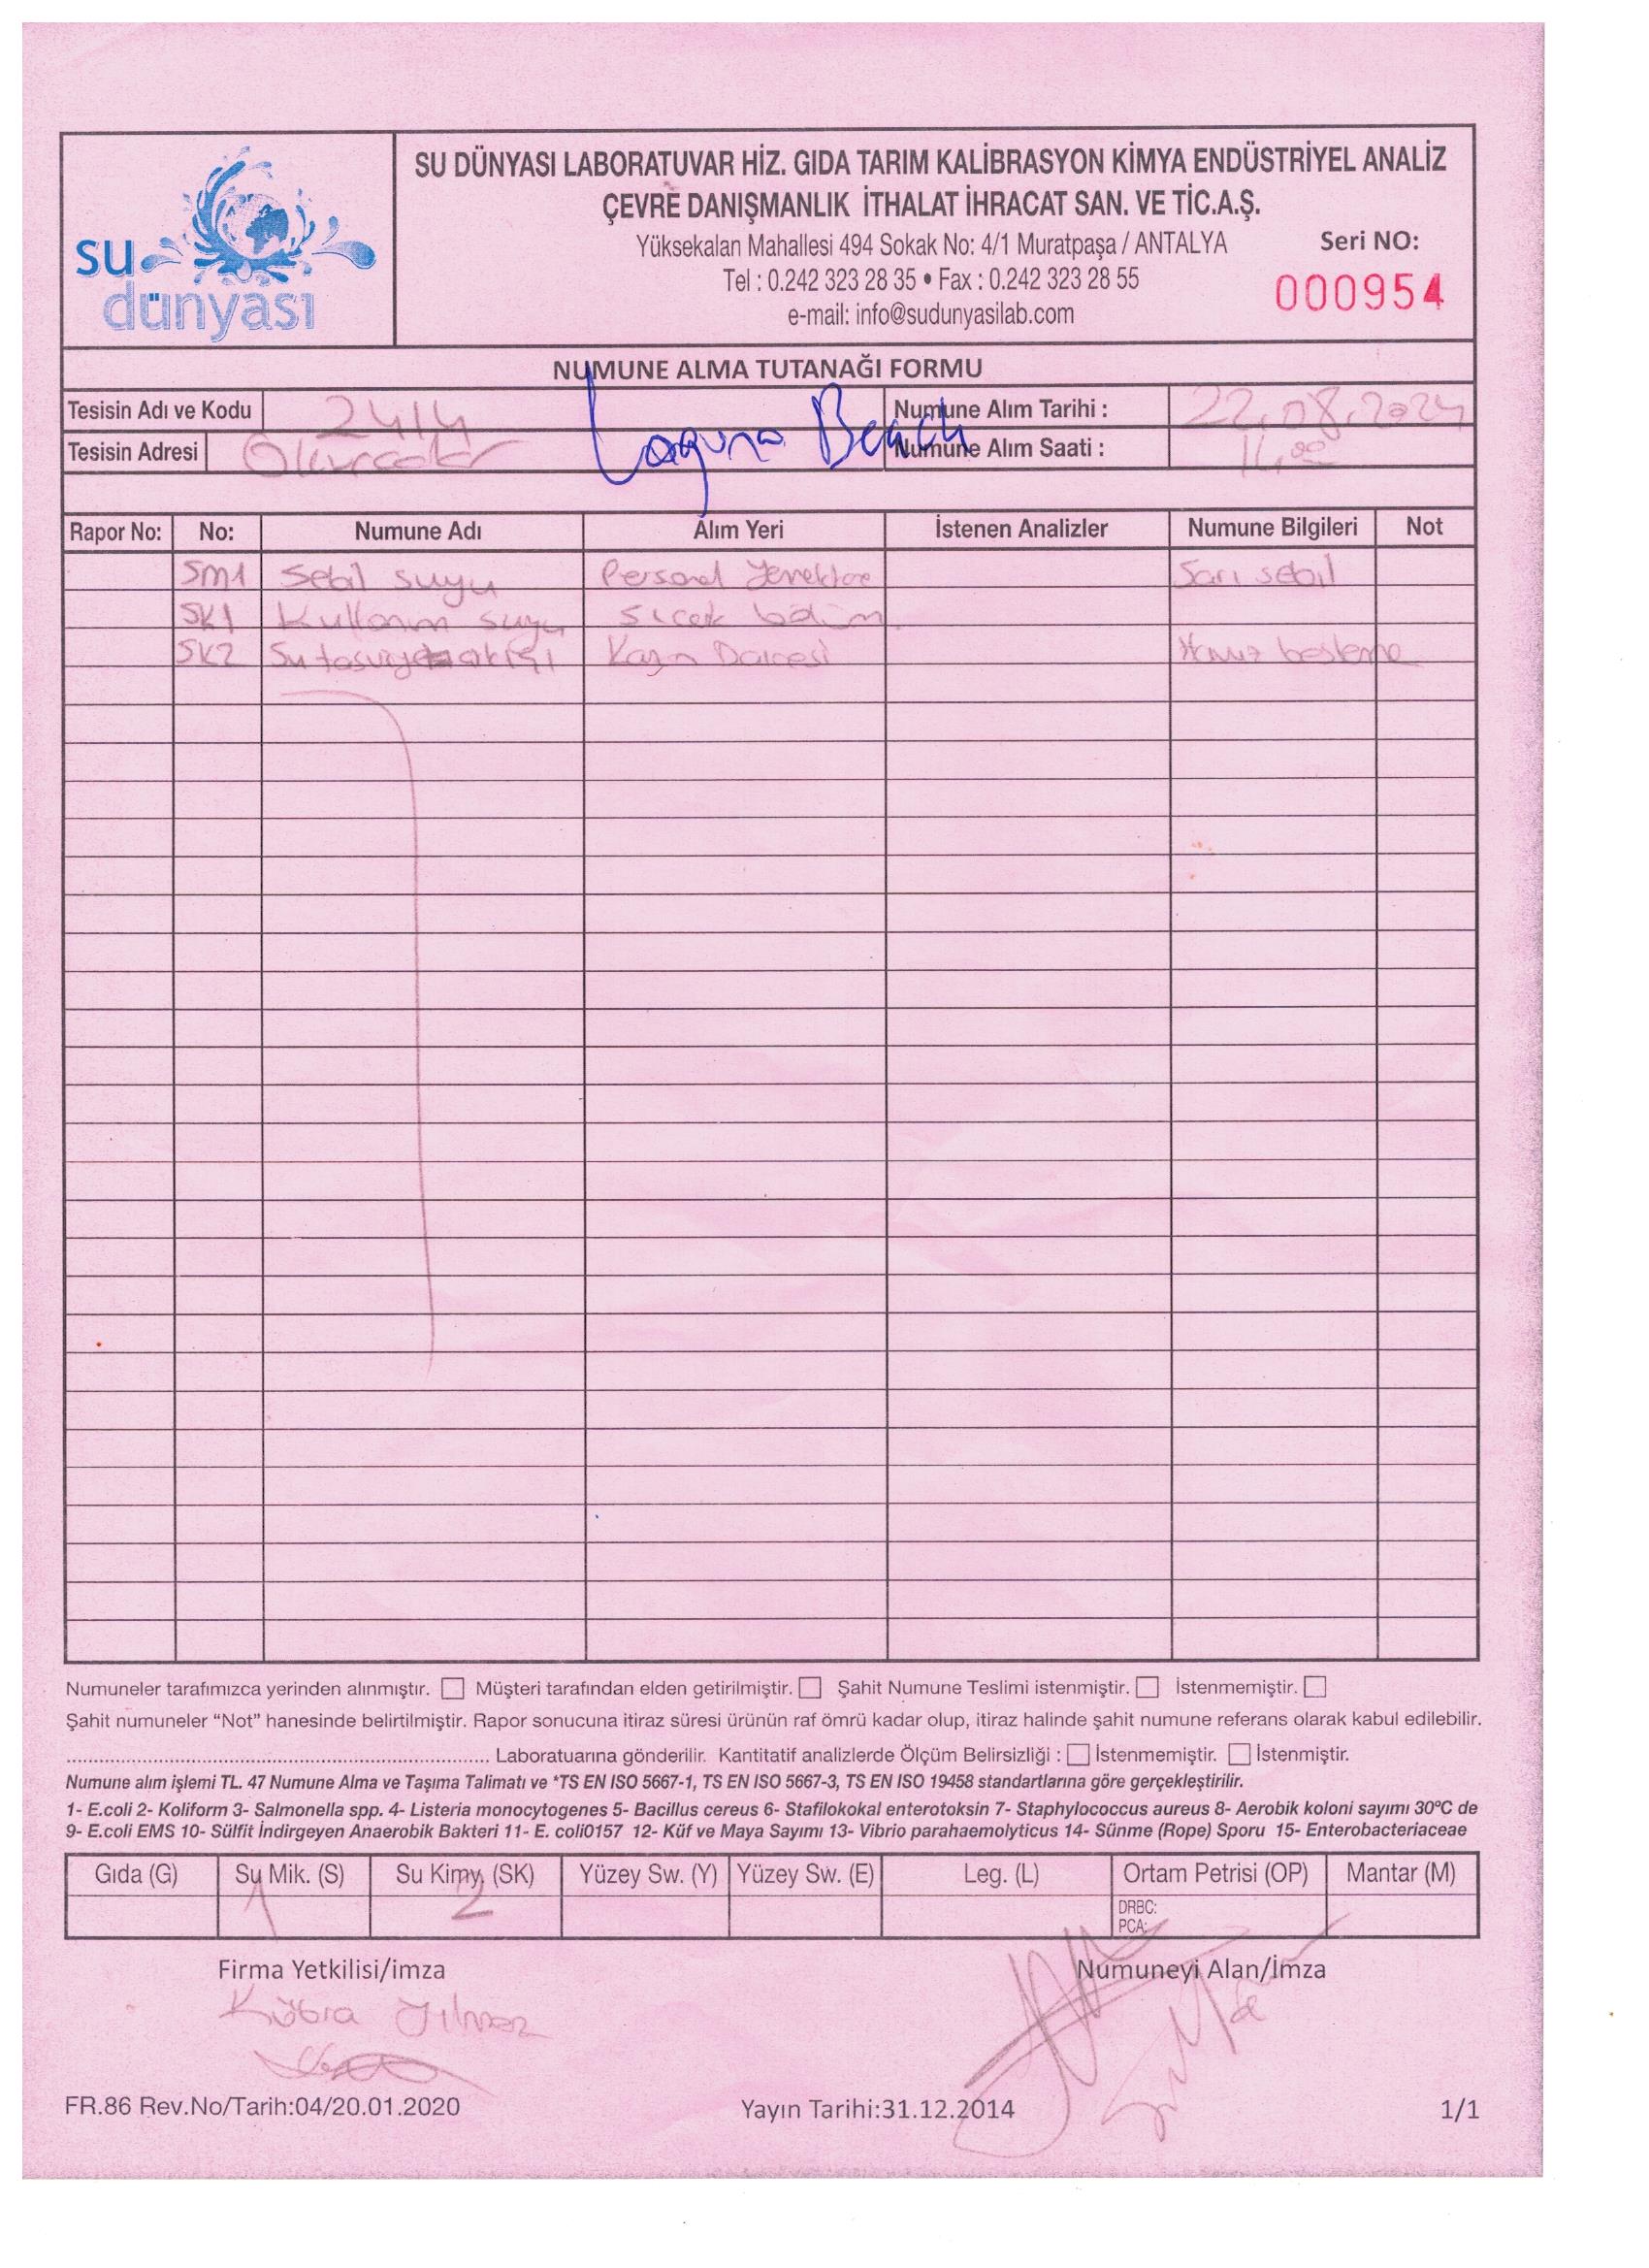 su
dünyası
SU DÜNYASI LABORATUVAR HİZ. GIDA TARIM KALİBRASYON KİMYA ENDÜSTRİYEL ANALİZ
ÇEVRE DANIŞMANLIK İTHALAT İHRACAT SAN. VE TİC.A.Ş.
Yüksekalan Mahallesi 494 Sokak No: 4/1 Muratpaşa / ANTALYA
Tel : 0.242 323 28 35 • Fax : 0.242 323 28 55
e-mail: info@sudunyasilab.com
Seri NO:
000954
NUMUNE ALMA TUTANAĞI FORMU
Tesisin Adı ve Kodu 2414 Laguna Beach Numune Alım Tarihi : 22.08.2024
Tesisin Adresi Numune Alım Saati :
Rapor No: No: Numune Adı Alım Yeri İstenen Analizler Numune Bilgileri Not
SM1 Sebil suyu Personel Yemekhane Sarı sebil
SK1 Kullanım suyu Sıcak bölüm
SK2 Su tasviye Kazan Dairesi besleme
Numuneler tarafımızca yerinden alınmıştır. Müşteri tarafından elden getirilmiştir. Şahit Numune Teslimi istenmiştir. İstenmemiştir.
Şahit numuneler “Not” hanesinde belirtilmiştir. Rapor sonucuna itiraz süresi ürünün raf ömrü kadar olup, itiraz halinde şahit numune referans olarak kabul edilebilir.
Laboratuarına gönderilir. Kantitatif analizlerde Ölçüm Belirsizliği : İstenmemiştir. İstenmiştir.
Numune alım işlemi TL. 47 Numune Alma ve Taşıma Talimatı ve *TS EN ISO 5667-1, TS EN ISO 5667-3, TS EN ISO 19458 standartlarına göre gerçekleştirilir.
1- E.coli 2- Koliform 3- Salmonella spp. 4- Listeria monocytogenes 5- Bacillus cereus 6- Stafilokokal enterotoksin 7- Staphylococcus aureus 8- Aerobik koloni sayımı 30ºC de
9- E.coli EMS 10- Sülfit İndirgeyen Anaerobik Bakteri 11- E. coli0157 12- Küf ve Maya Sayımı 13- Vibrio parahaemolyticus 14- Sünme (Rope) Sporu 15- Enterobacteriaceae
Gıda (G) Su Mik. (S) Su Kimy. (SK) Yüzey Sw. (Y) Yüzey Sw. (E) Leg. (L) Ortam Petrisi (OP) Mantar (M)
1 2 DRBC:
PCA:
Firma Yetkilisi/imza Numuneyi Alan/İmza
Kübra Yılmaz
FR.86 Rev.No/Tarih:04/20.01.2020 Yayın Tarihi:31.12.2014 1/1